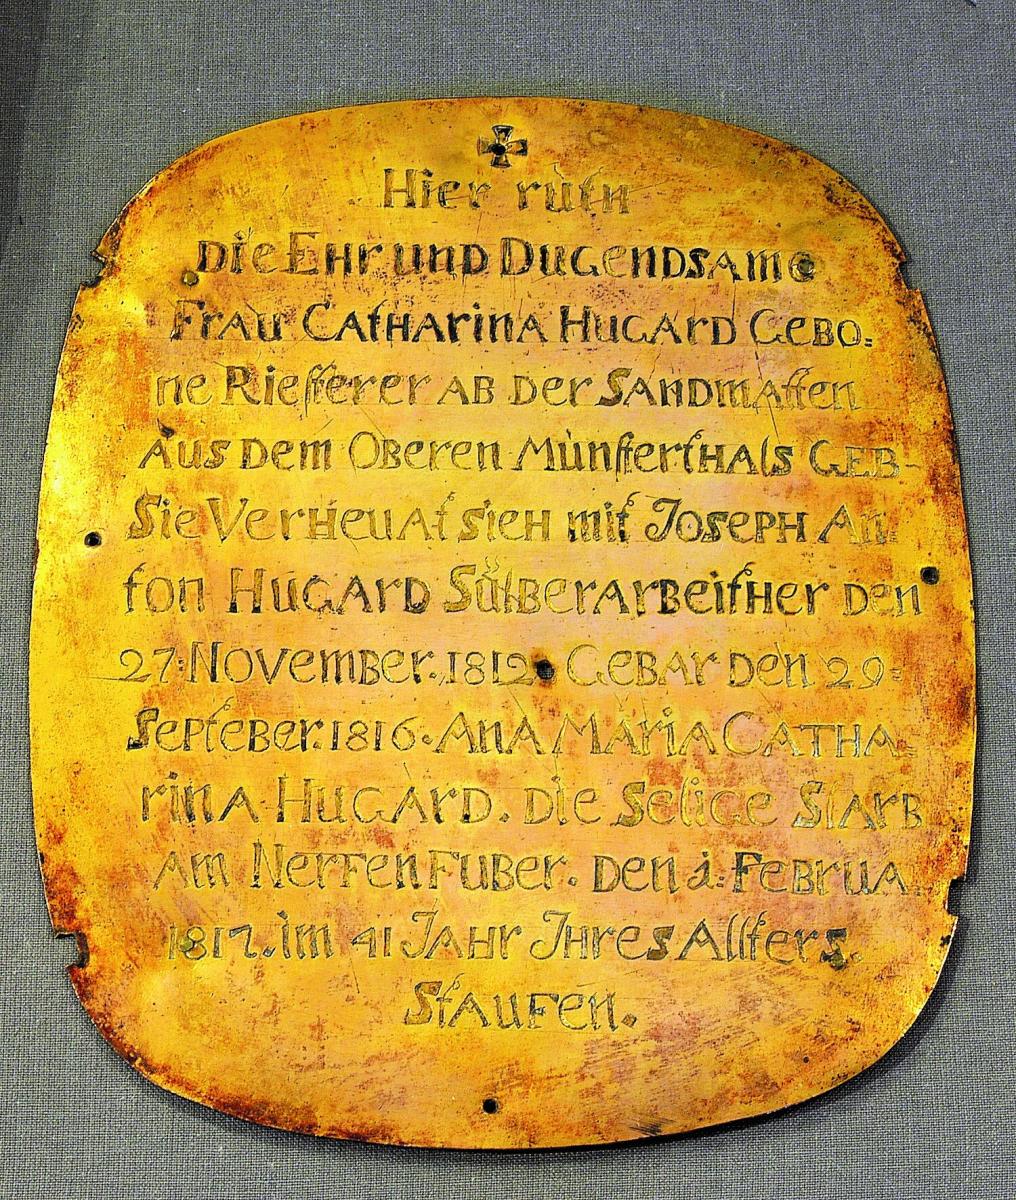 Hier ruth
Die Ehr und Dugendsame
Frau Catharina Hugard Gebo:
ne Riefferer ab der Sandmatten
Aus dem Oberen Münsterthals Geb-
Sie Verheuat sich mit Joseph An:
ton Hugard Sülberarbeither den
27: November. 1812. Gebar den 29:
Septeber. 1816. Ana Maria Catha:
rina Hugard. Die Selige Starb
Am Nerfenfuber. den 1: Februa.
1817. im 41 Jahr Ihres Allters.
Staufen.